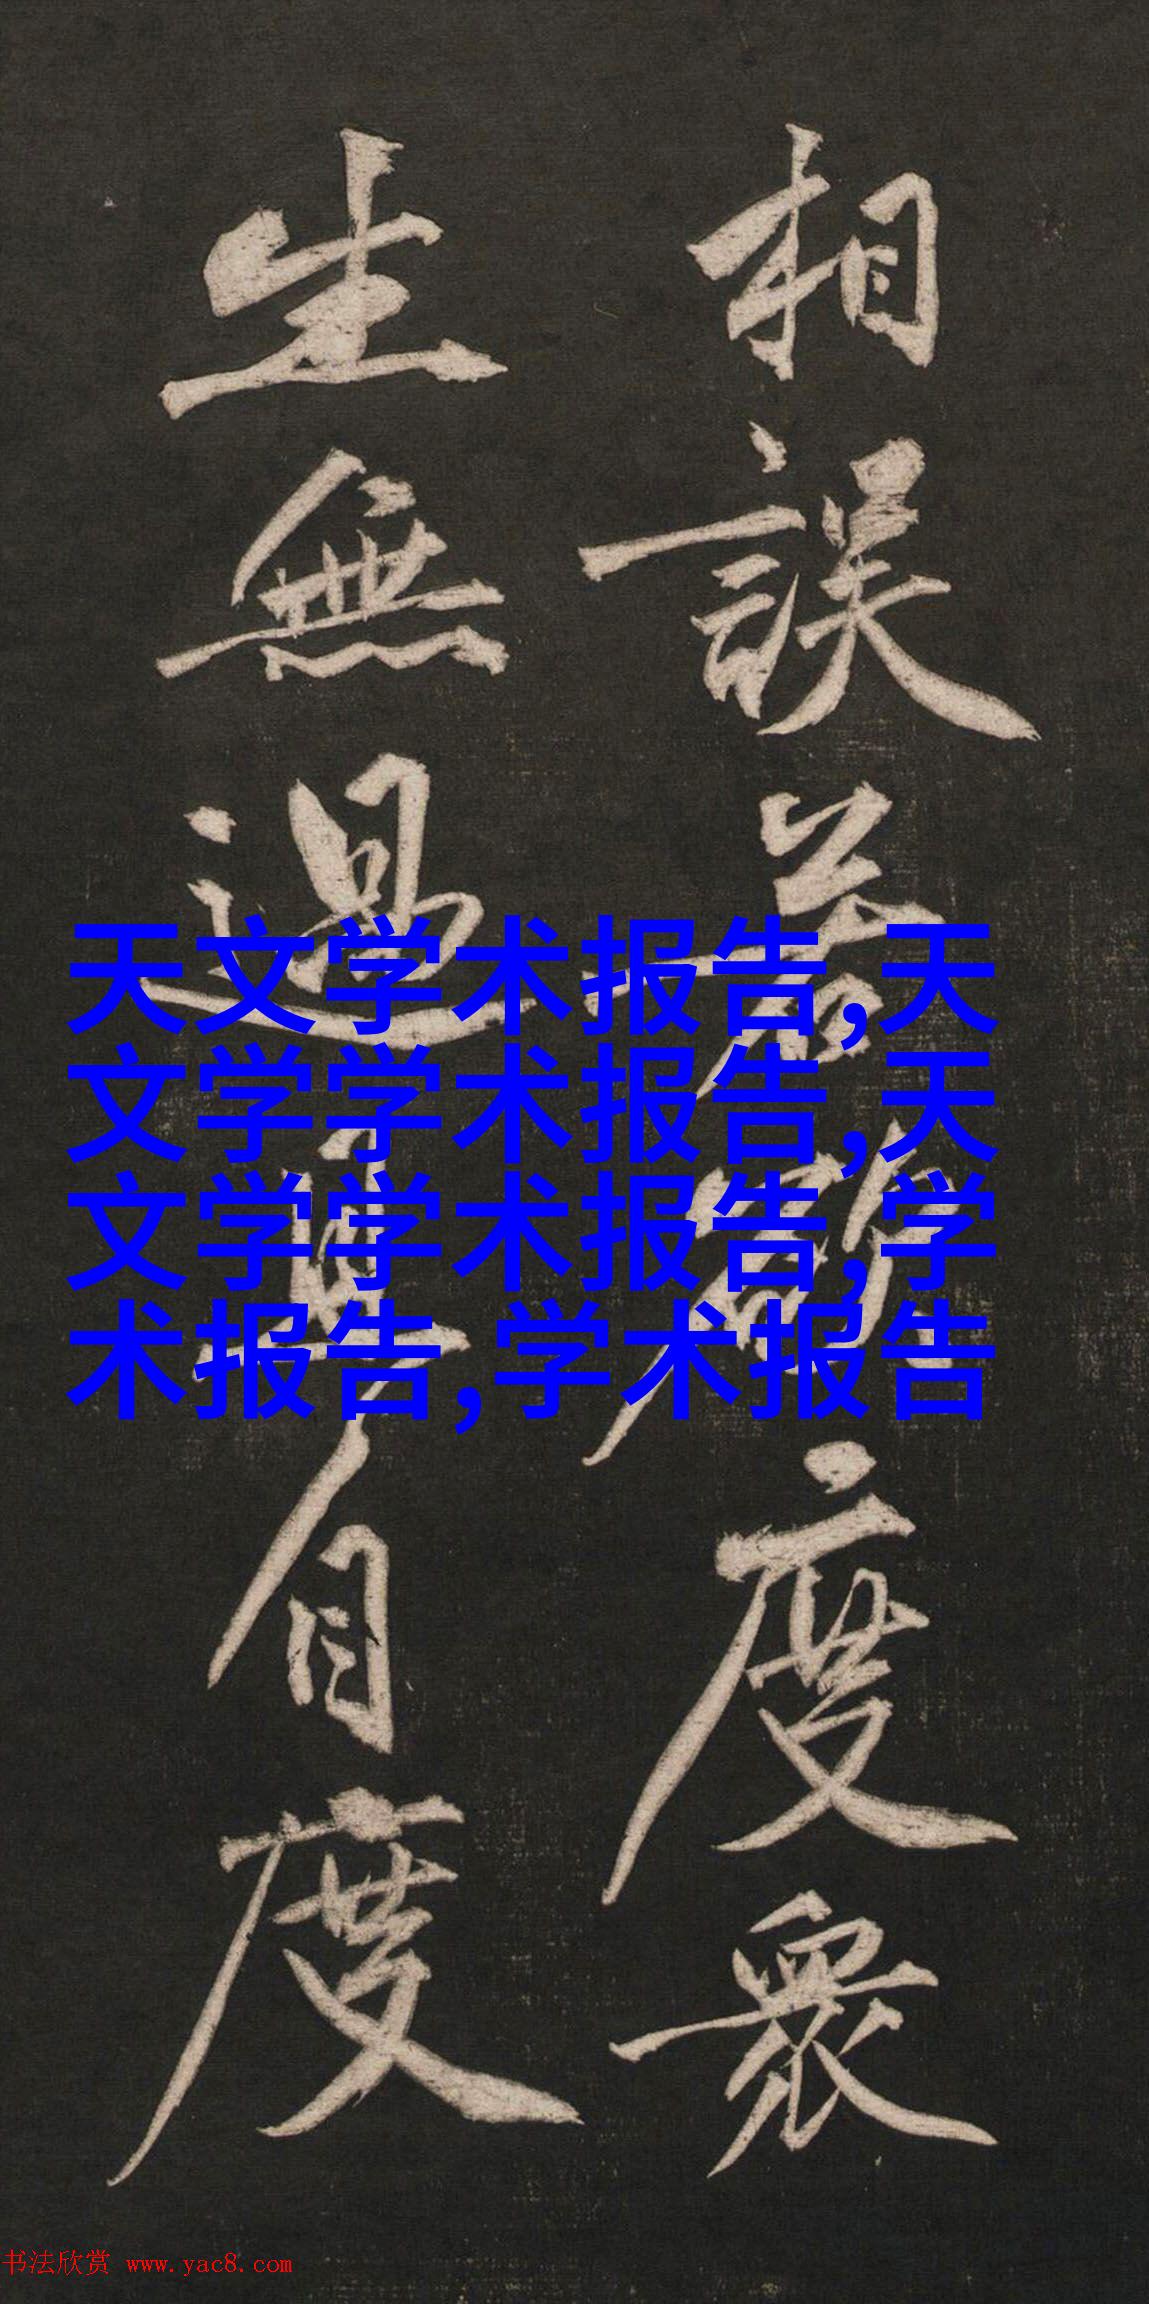 相誤若度衆
生無過自度
天文学术报告,天
文学学术报告,天
文学学术报告,学
术报告,学术报告
书法欣赏 www.yac8.com